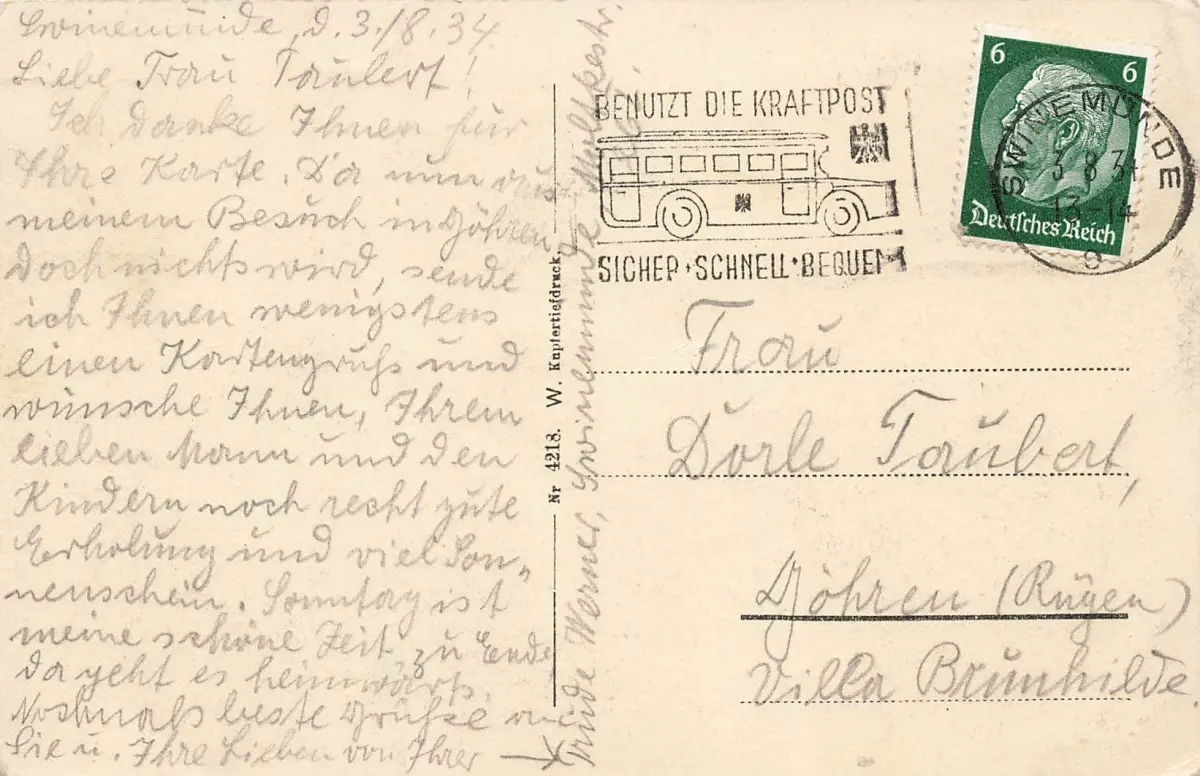 Swinemünde, d. 3./8. 34.
Liebe Frau Taubert!
Ich danke Ihnen für
das Karte. Da nun aus
meinem Besuch in Göhren
doch nichts wird, sende
ich Ihnen wenigstens
einen Kartengruß und
wünsche Ihnen, Ihrem
lieben Mann und den
Kindern noch recht gute
Erholung und viel Son„
nenschein. Sonntag ist
meine schöne Zeit zu Ende
da geht es heimwärts.
Nochmals beste Grüße an
Sie u. Ihre Lieben von Ihrer
Trude Werner, Swinemünde Moltkestr.
Nr 4218. W. Kupfertiefdruck.
BENUTZT DIE KRAFTPOST
SICHER • SCHNELL • BEQUEM
6 6
Deutsches Reich
SWINEMÜNDE
3 8 34
13-14
Frau
Dorle Taubert,
Göhren (Rügen)
Villa Brunhilde.